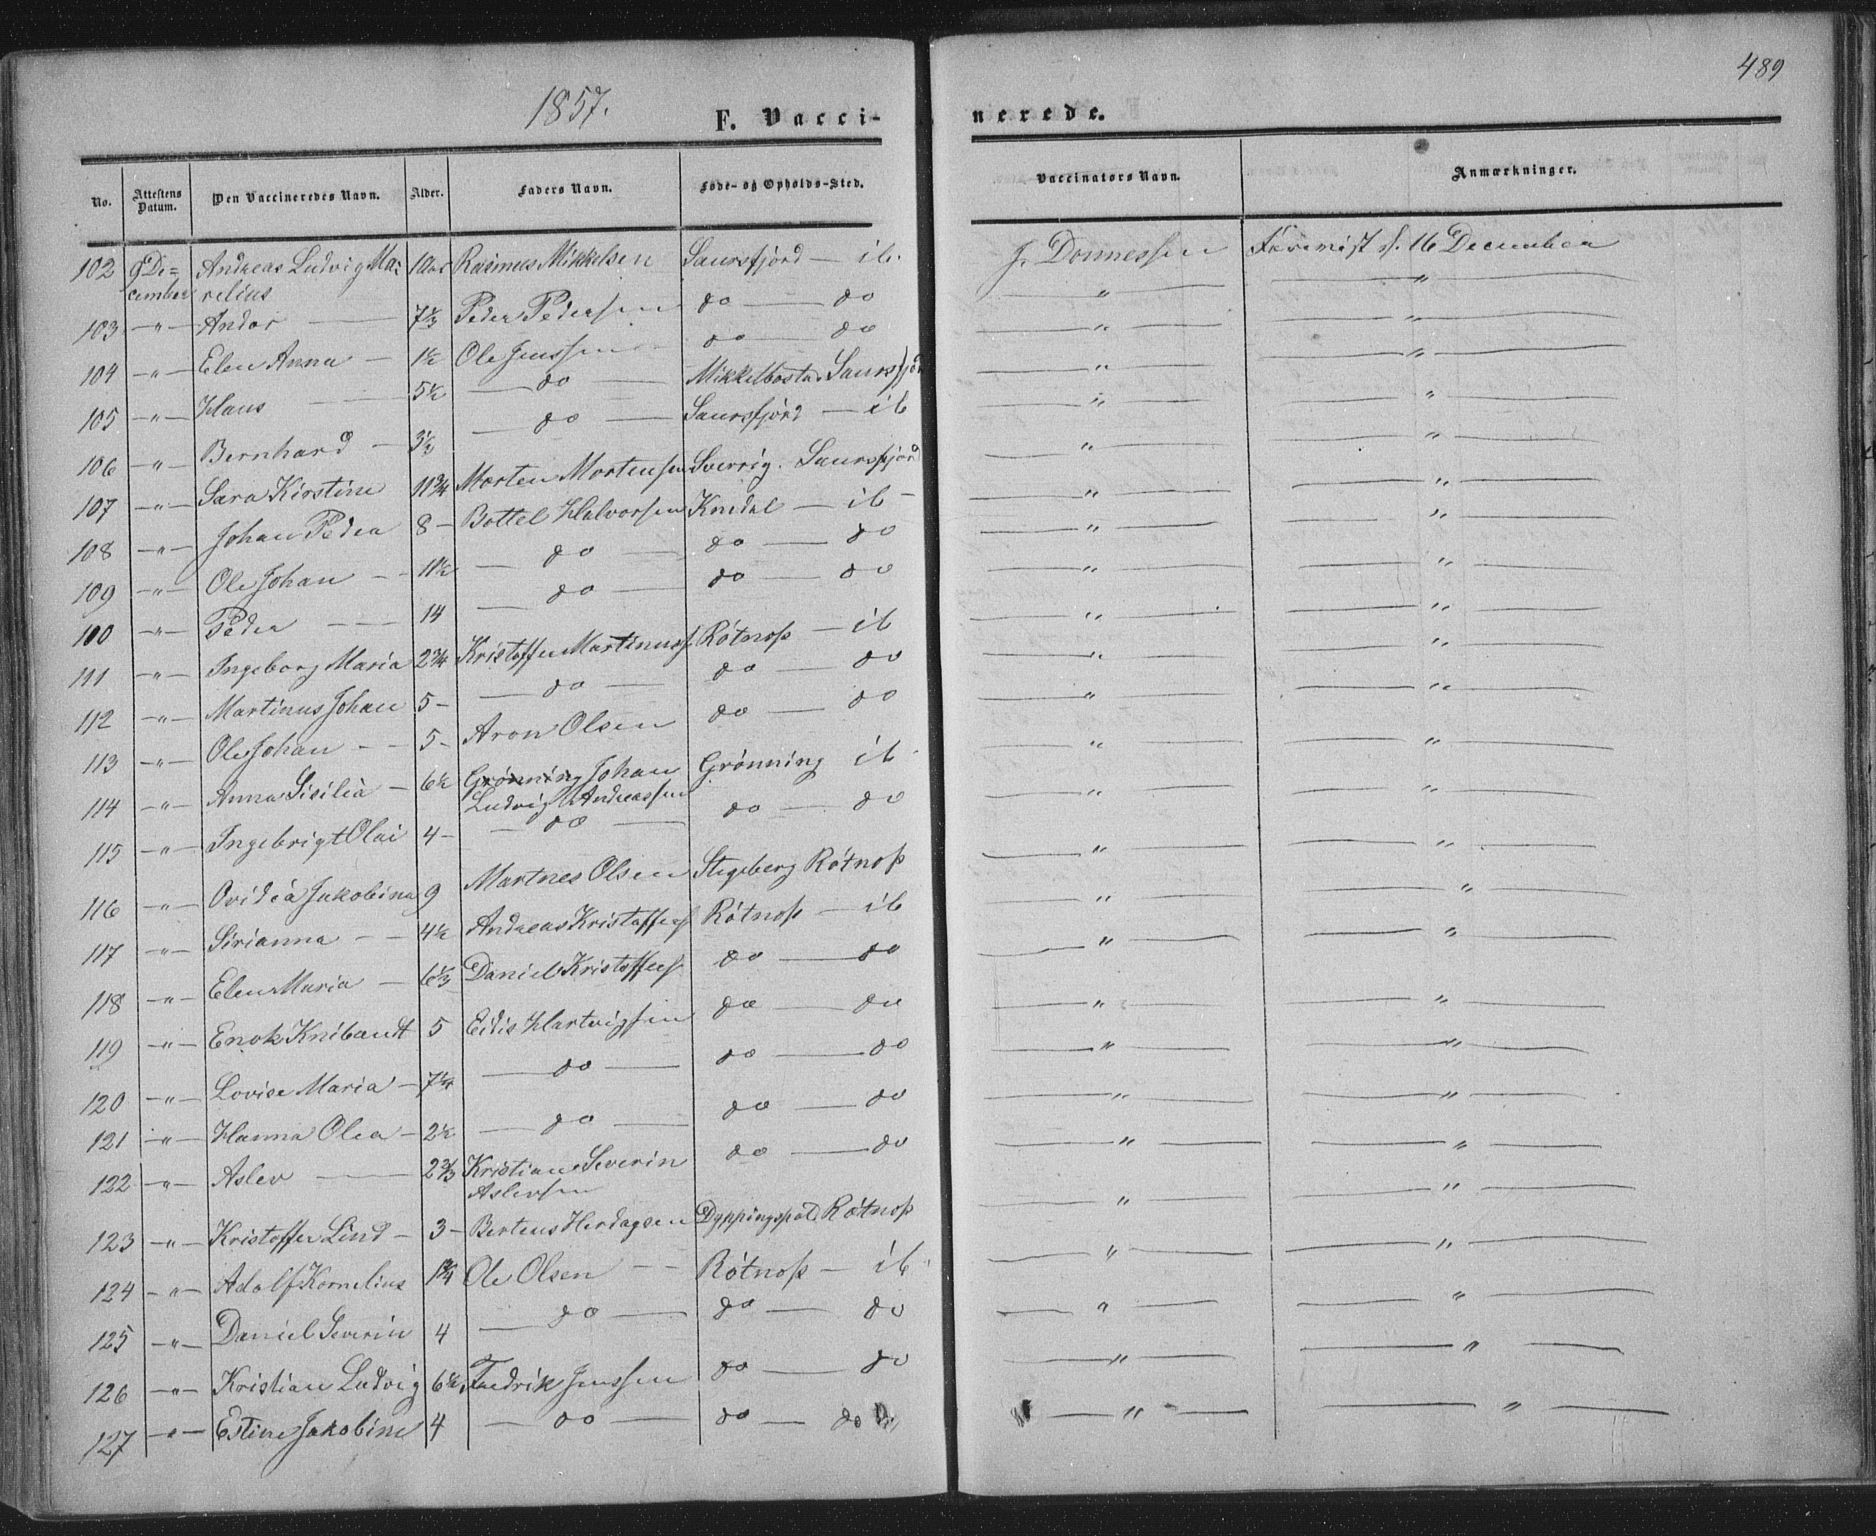 489
1857.
F. Vacci-
nerede.
No. Attestens Datum. Den Vaccineredes Navn. Alder. Faders Navn. Føde- og Opholds-Sted. Vaccinators Navn. Anmærkninger.
102 9 De= Andreas Ludvig Ma= Rasmus Mikkelsen Saursfjord — ib. J. Donnessen d. 16 December
cember relius — " — — " —
103 — " — Andor — 7 1/3 Peder Pedersen do — do — " — — " —
104 — " — Elen Anna — 1 1/2 Ole Jenssen do — do — " — — " —
105 — " — Hans — 5 1/2 — do — Mikkelbostad Saursfjord — " — — " —
106 — " — Bernhard — 3 1/2 — do — Saursfjord — ib — " — — " —
107 — " — Sara Kirstine 11 3/4 Morten Mortensen Sverrig. Saursfjord — " — — " —
108 — " — Johan Peder 8 — Bottel Halvorsen Knedal — ib — — " — — " —
109 — " — Ole Johan — 11 1/2 — do — do — do — " — — " —
110 — " — Peder — 14 — do — do — do — " — — " —
111 — " — Ingeborg Maria 2 3/4 Kristoffer Martinuss. Røtnøß — ib — " — — " —
112 — " — Martinus Johan 5 — — do — do — do — " — — " —
113 — " — Ole Johan — 5 — Aron Olsen do — do — " — — " —
114 — " — Anna Sisilia — 6 1/2 Grønning Johan Grønning ib — " — — " —
Ludvig Andreassen
115 — " — Ingebrigt Olai 4 — — do — do — do — " — — " —
116 — " — Ovidia Jakobina 9 Martnes Olsen Stegeberg Røtnøß — " — — " —
117 — " — Sirianna — 4 1/2 Andreas Kristoffers. Røtnøß — ib — " — — " —
118 — " — Elen Maria — 6 1/3 Daniel Kristoffers. do — do — " — — " —
119 — " — Enok Knibandt 5 Eidis Hartvigsen do — do — " — — " —
120 — " — Lovise Maria — 7 1/4 — do — do — do — " — — " —
121 — " — Hanna Olea — 2 1/2 — do — do — do — " — — " —
122 — " — Aslev — 2 2/3 Kristian Severin do — do — " — — " —
Aslevsen
123 — " — Kristoffer Lind — 3 — Berteus Herdagsen Røtnøß — " — — " —
124 — " — Adolf Kornelius 1 3/4 Ole Olsen — Røtnøß — ib. — " — — " —
125 — " — Daniel Severin 4 — do — do — do — " — — " —
126 — " — Kristian Ludvig 6 1/2 Fredrik Jenssen do — do — " — — " —
127 — " — Estine Jakobine 4 — do — do — do — " — — " —